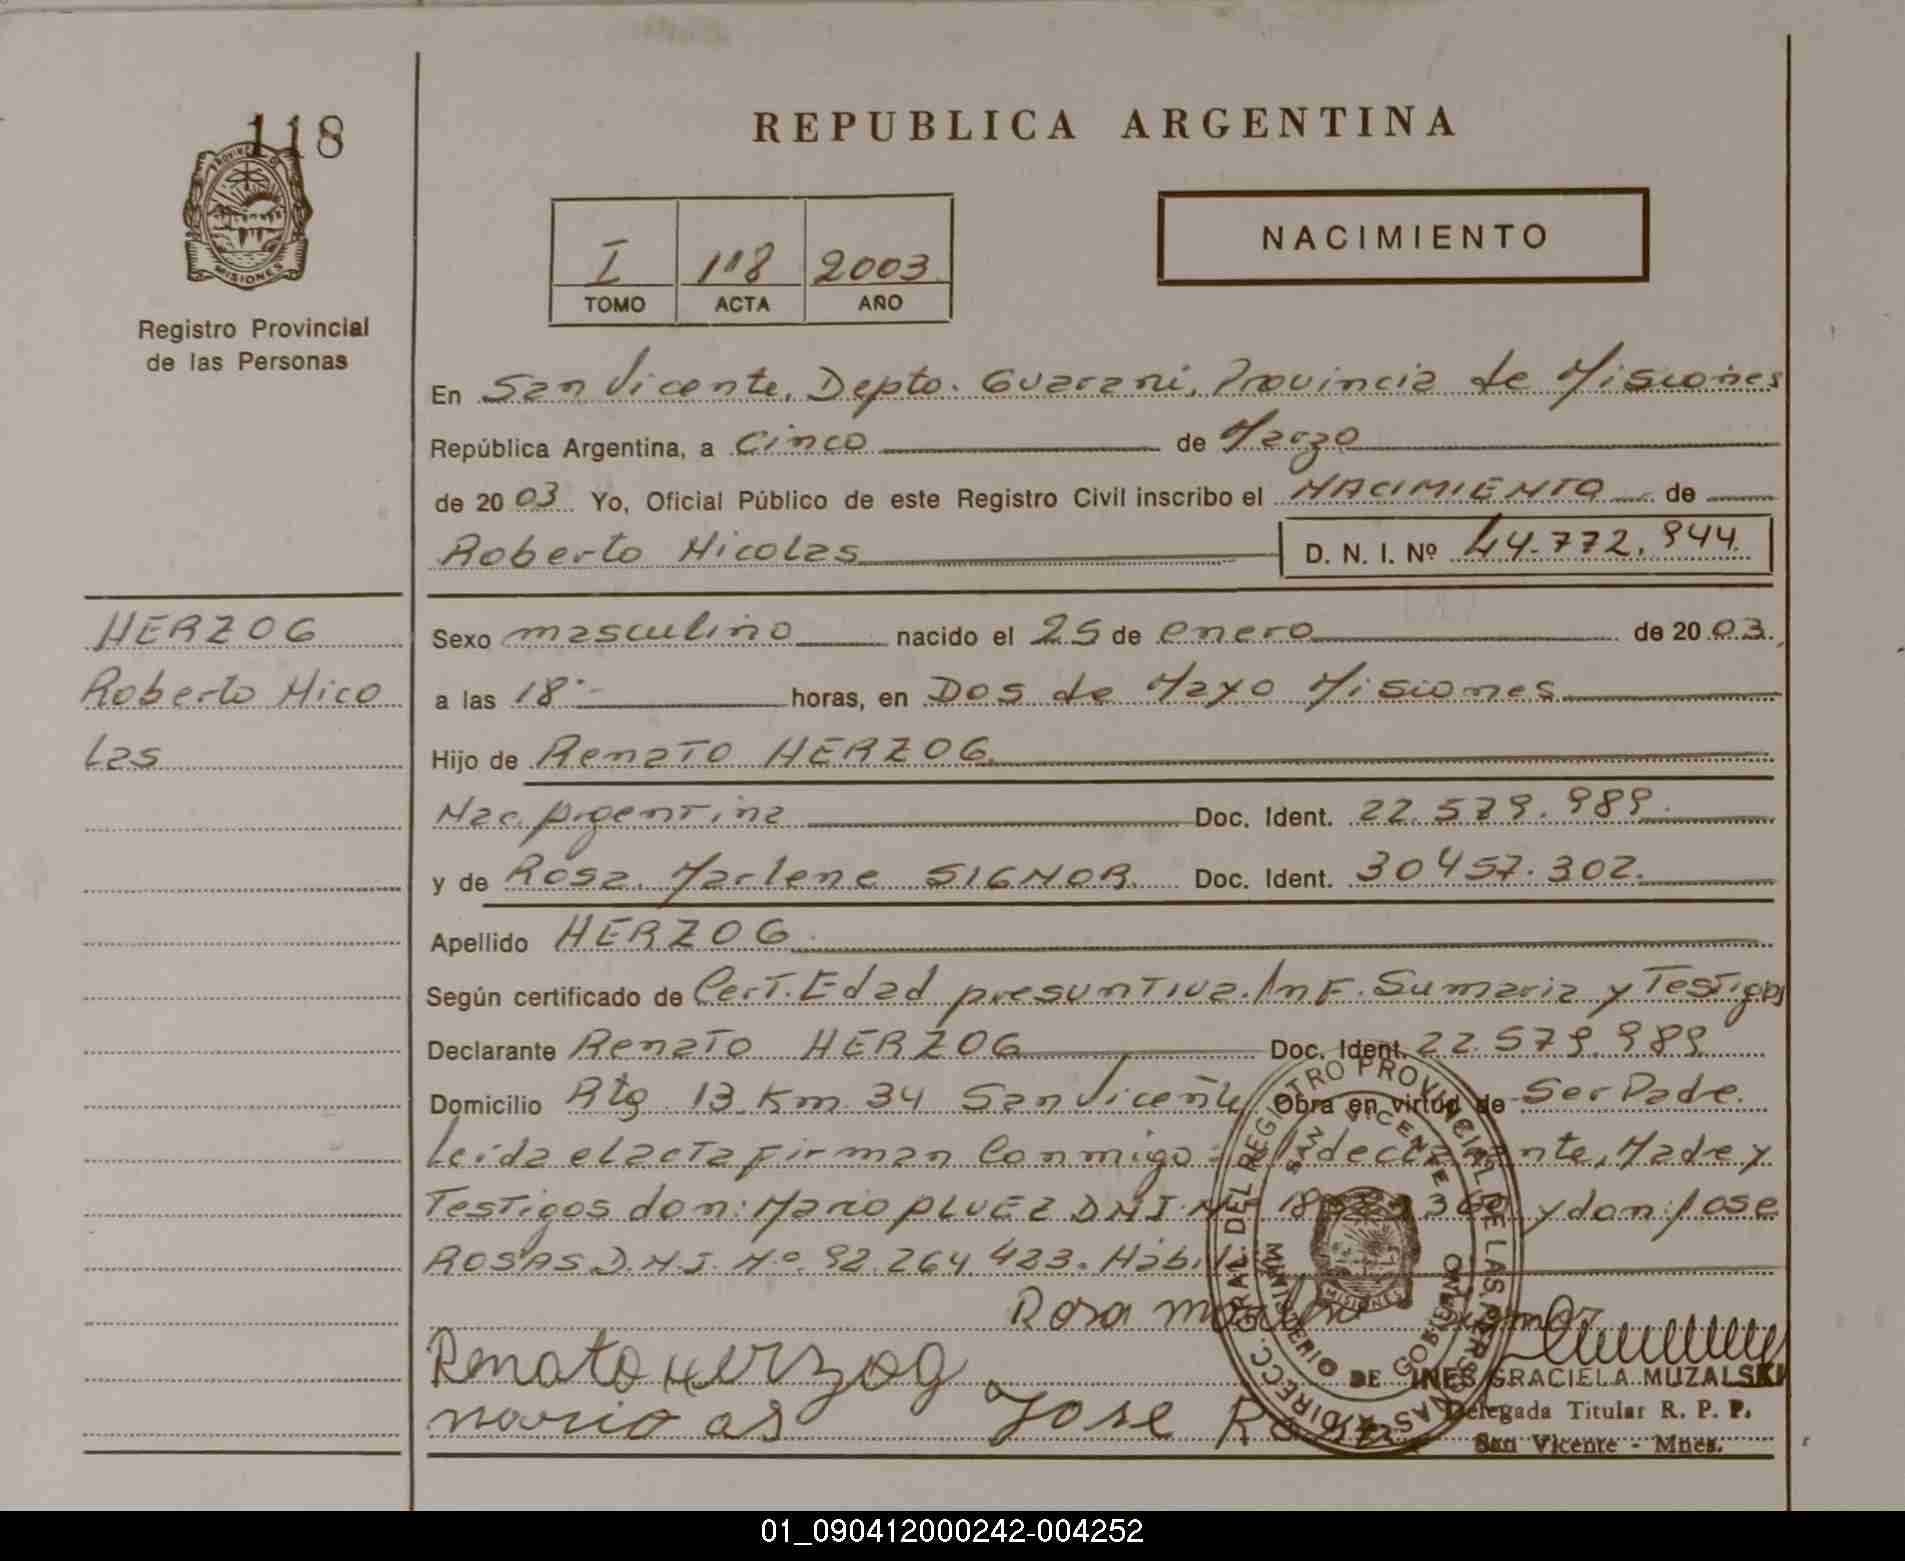 118
REPUBLICA ARGENTINA
NACIMIENTO
I 118 2003
TOMO ACTA AÑO
MISIONES
Registro Provincial
de las Personas
En San Vicente, Depto. Guarani, Provincia de Misiones
República Argentina, a Cinco de Marzo
de 2003 Yo, Oficial Público de este Registro Civil inscribo el NACIMIENTO de
Roberto Nicolas D. N. I. Nº 44.772.944.
HERZOG
Roberto Nico
las
Sexo masculino nacido el 25 de enero de 2003.
a las 18:- horas, en Dos de Mayo Misiones
Hijo de Renato HERZOG.
Nac. Argentina Doc. Ident. 22.579.989.
y de Rosa Marlene SIGNOR. Doc. Ident. 30457.302.
Apellido HERZOG
Según certificado de Cert. Edad presuntiva. Inf. Sumaria y Testigos
Declarante Renato HERZOG Doc. Ident. 22.579.989
Domicilio Rta 13 Km 34 San Vicente Obra en virtud de Ser Padre.
Leida el acta firman Conmigo: declarante, Madre y
Testigos don: Mario PLUEZ DNI. Nº 18 360 y don: Jose
ROSAS D.N.I. Nº. 92.264.423. Habiles
Rosa Marlene Signor
Renato Herzog
Jose Rosas
DIRECC. GRAL. DEL REGISTRO PROVINCIAL DE LAS PERSONAS
SAN VICENTE
MINISTERIO DE GOBIERNO
MISIONES
INES GRACIELA MUZALSKI
Delegada Titular R. P. P.
San Vicente - Mnes.
01_090412000242-004252